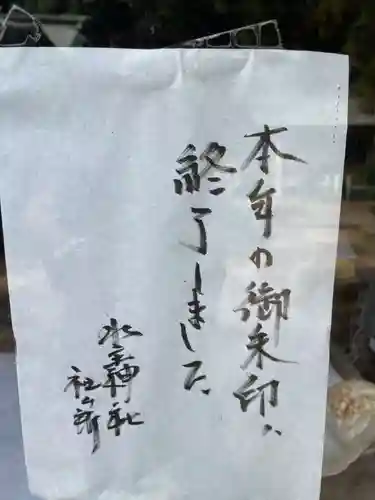 本年の御朱印ハ
終了しました
水宝神社
社ム所